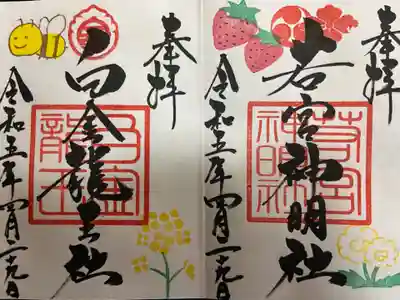 奉拝
若宮神明社
令和五年四月二十九日
若宮
神明社
奉拝
白金龍王社
令和五年四月二十九日
龍王